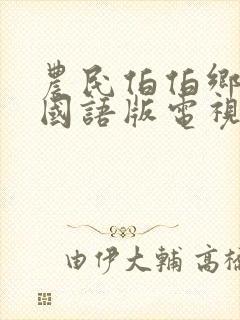 農民伯伯鄉
國語版電視
由伊大輔 高橋